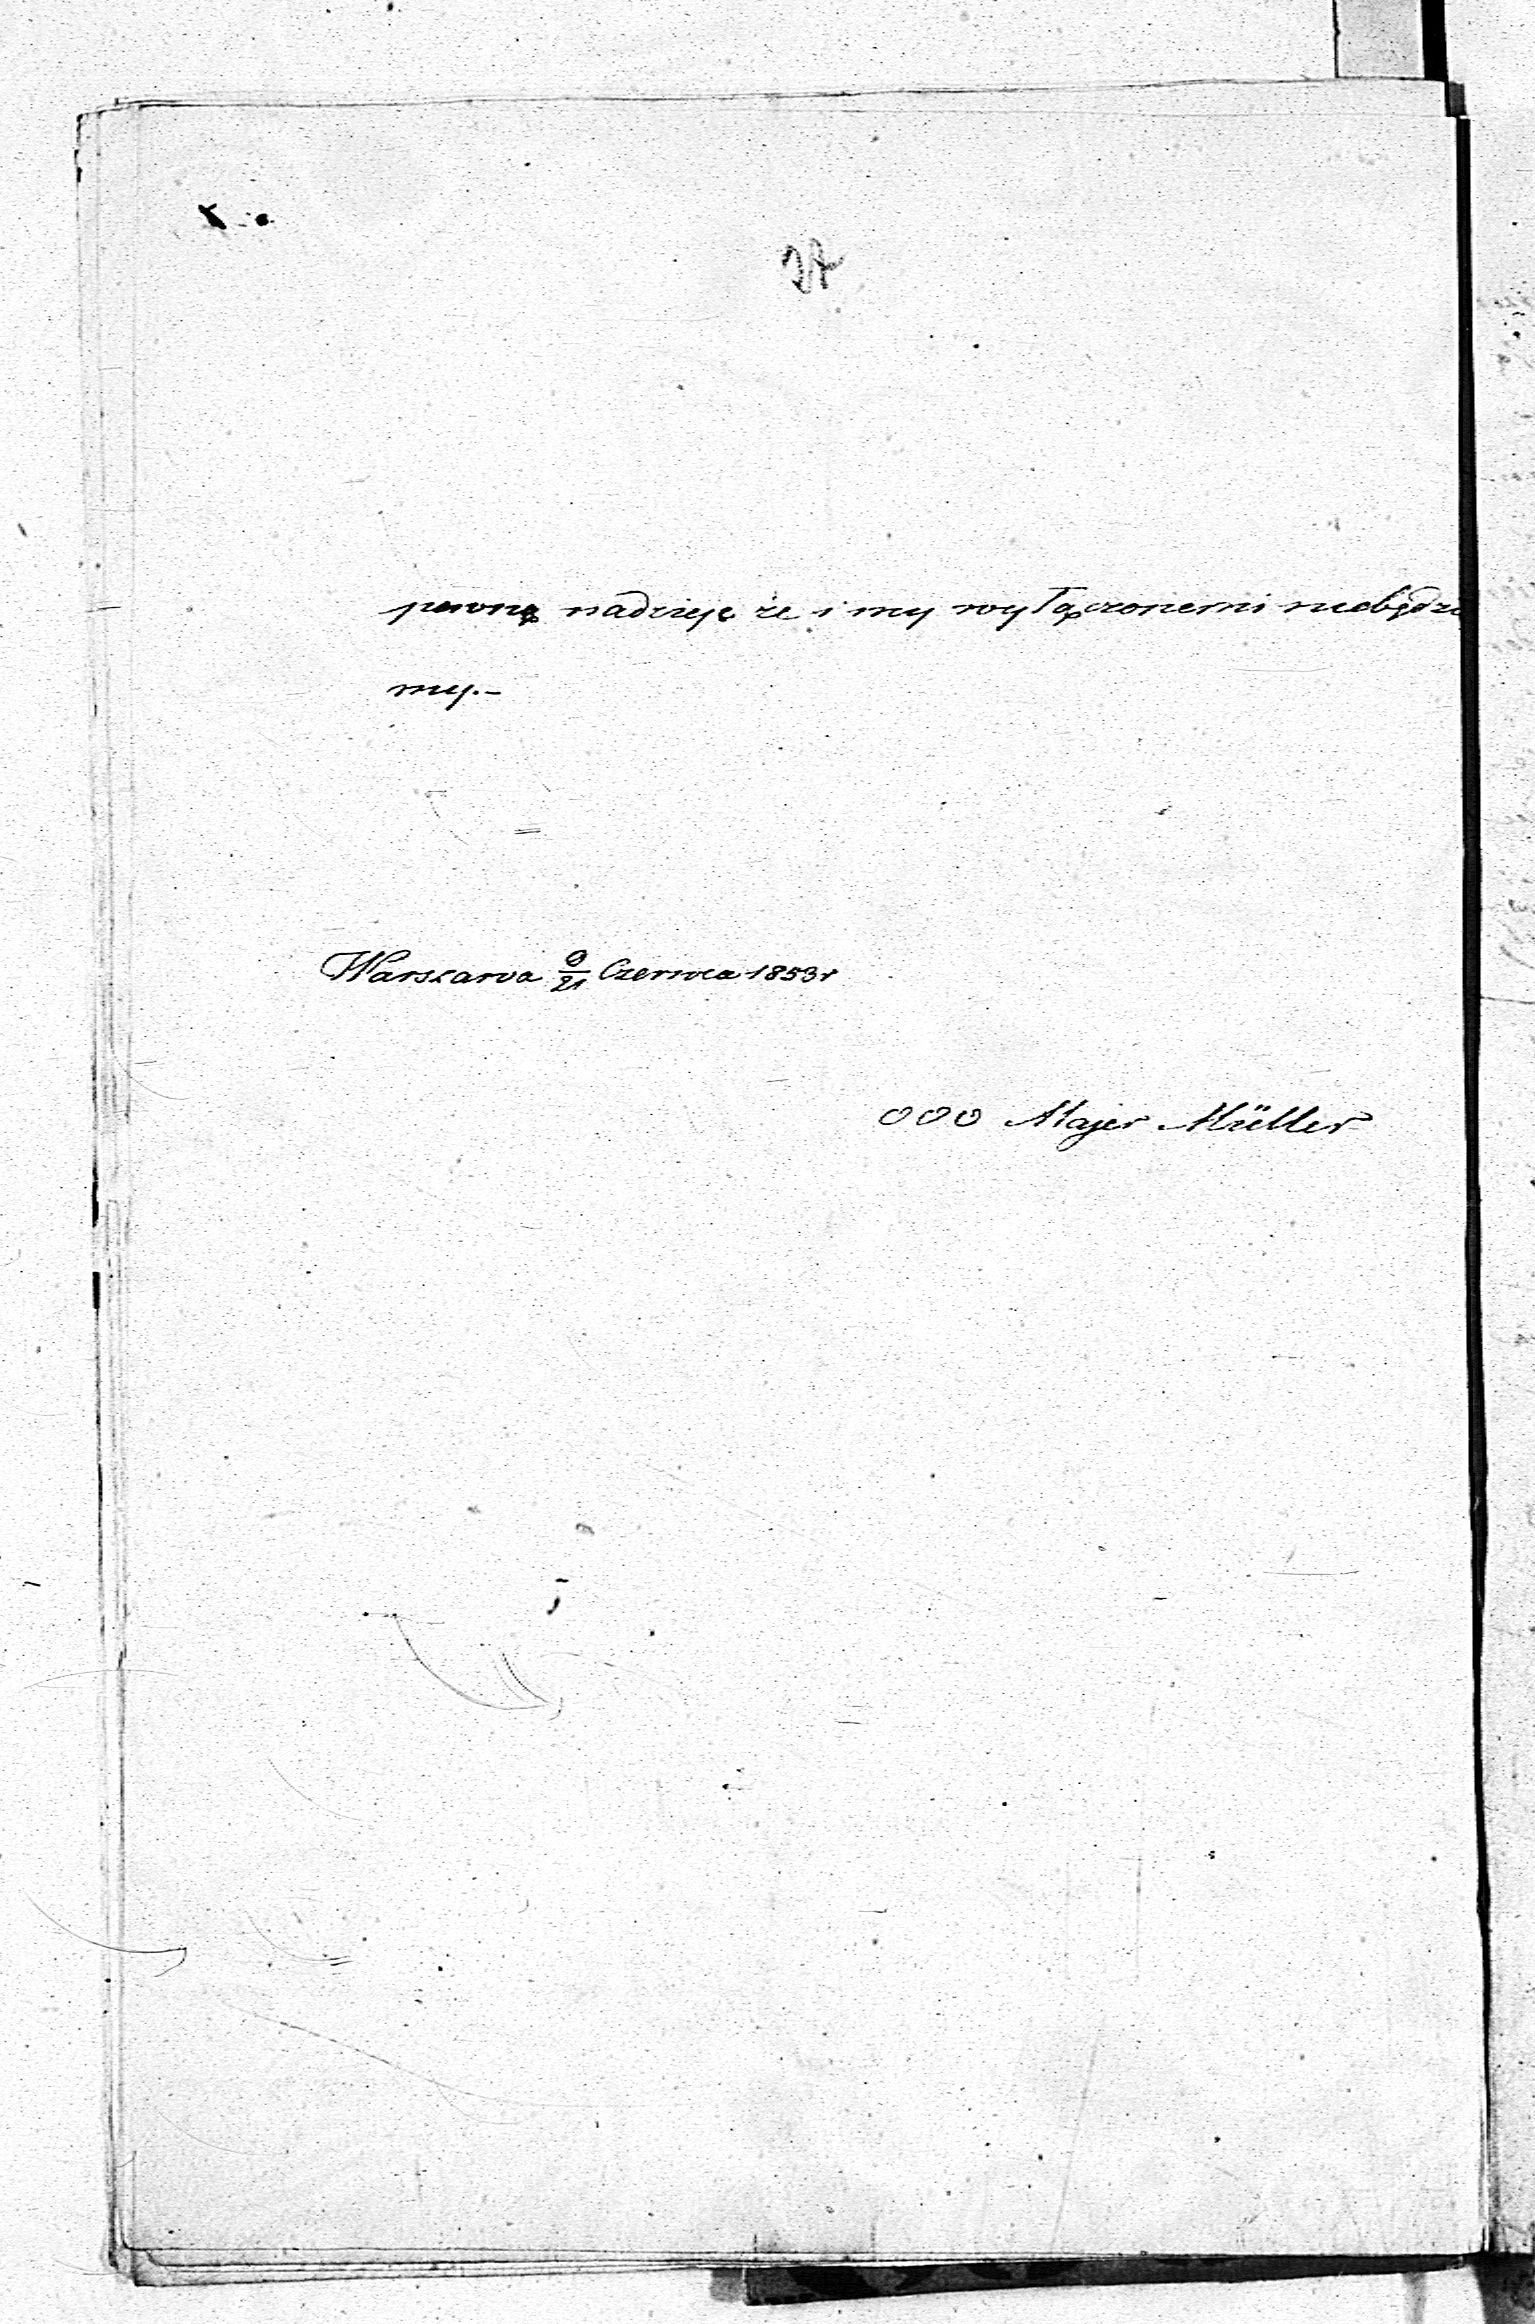 pewną nadzieję że i my wyłączonemi niebędzie
my.-
Warszawa 9/21 Czerwca 1853 r
000 Majer Müller